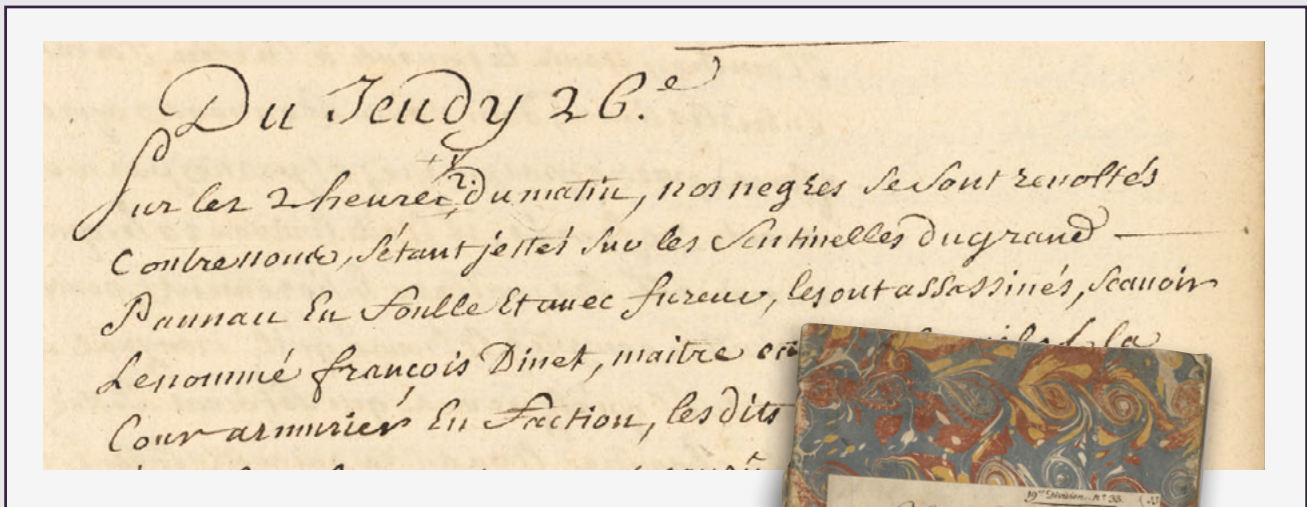 Du Jeudy 26.e
Sur les 2 heures 1/2 du matin, nos negres se sont revoltés
Contre nous, s'étant jettés sur les Sentinelles du grand
Pannau En foulle Et avec fureur, les ont assassinés, scavoir
Le nommé françois Dinet, maitre la
Cour armurier En Faction, les dits
19e Division. n° 33.